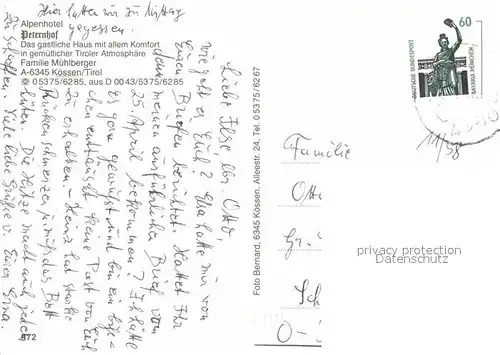 Hier hatten wir zu Mittag
gegessen.
Alpenhotel
Peternhof
Das gastliche Haus mit allem Komfort
in gemütlicher Tiroler Atmosphäre
Familie Mühlberger
A-6345 Kössen/Tirol
05375/6285, aus D 0043/5375/6285
Liebe Ilse, lbr. Otto,
wie geht es Euch? Ella hatte mir von
Euren Briefen berichtet. Hattet Ihr
denn meinen ausführlichen Brief vom
25. April bekommen? Ich hätte
es gern gewußt und bin ein biß-
chen enttäuscht keine Post von Euch
zu erhalten. Heinz hat starke
Rückenschmerzen, muß das Bett
hüten. Die Hitze macht auch jedem
zu schaffen. Viele liebe Grüße v. Eurer
472
Foto Bernard, 6345 Kössen, Alleestr. 24, Tel. 05375/6267
60
DEUTSCHE BUNDESPOST
BAVARIA MÜNCHEN
Familie
Otto
Gr.
Sch
O-
privacy protection
Datenschutz